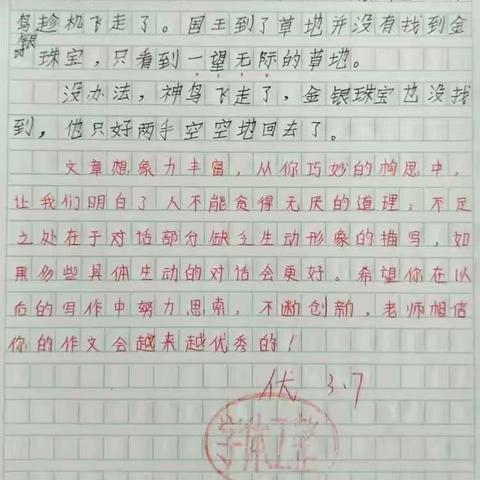 鸟趁机飞走了。国王到了草地并没有找到金
银珠宝，只看到一望无际的草地。
没办法，神鸟飞走了，金银珠宝也没找
到，他只好两手空空地回去了。
文章想象力丰富，从你巧妙的构思中，
让我们明白了人不能贪得无厌的道理；不足
之处在于对话部分缺乏生动形象的描写，如
果多些具体生动的对话会更好。希望你在以
后的写作中努力思索，不断创新，老师相信
你的作文会越来越优秀的！
伏 3.7
字体工整